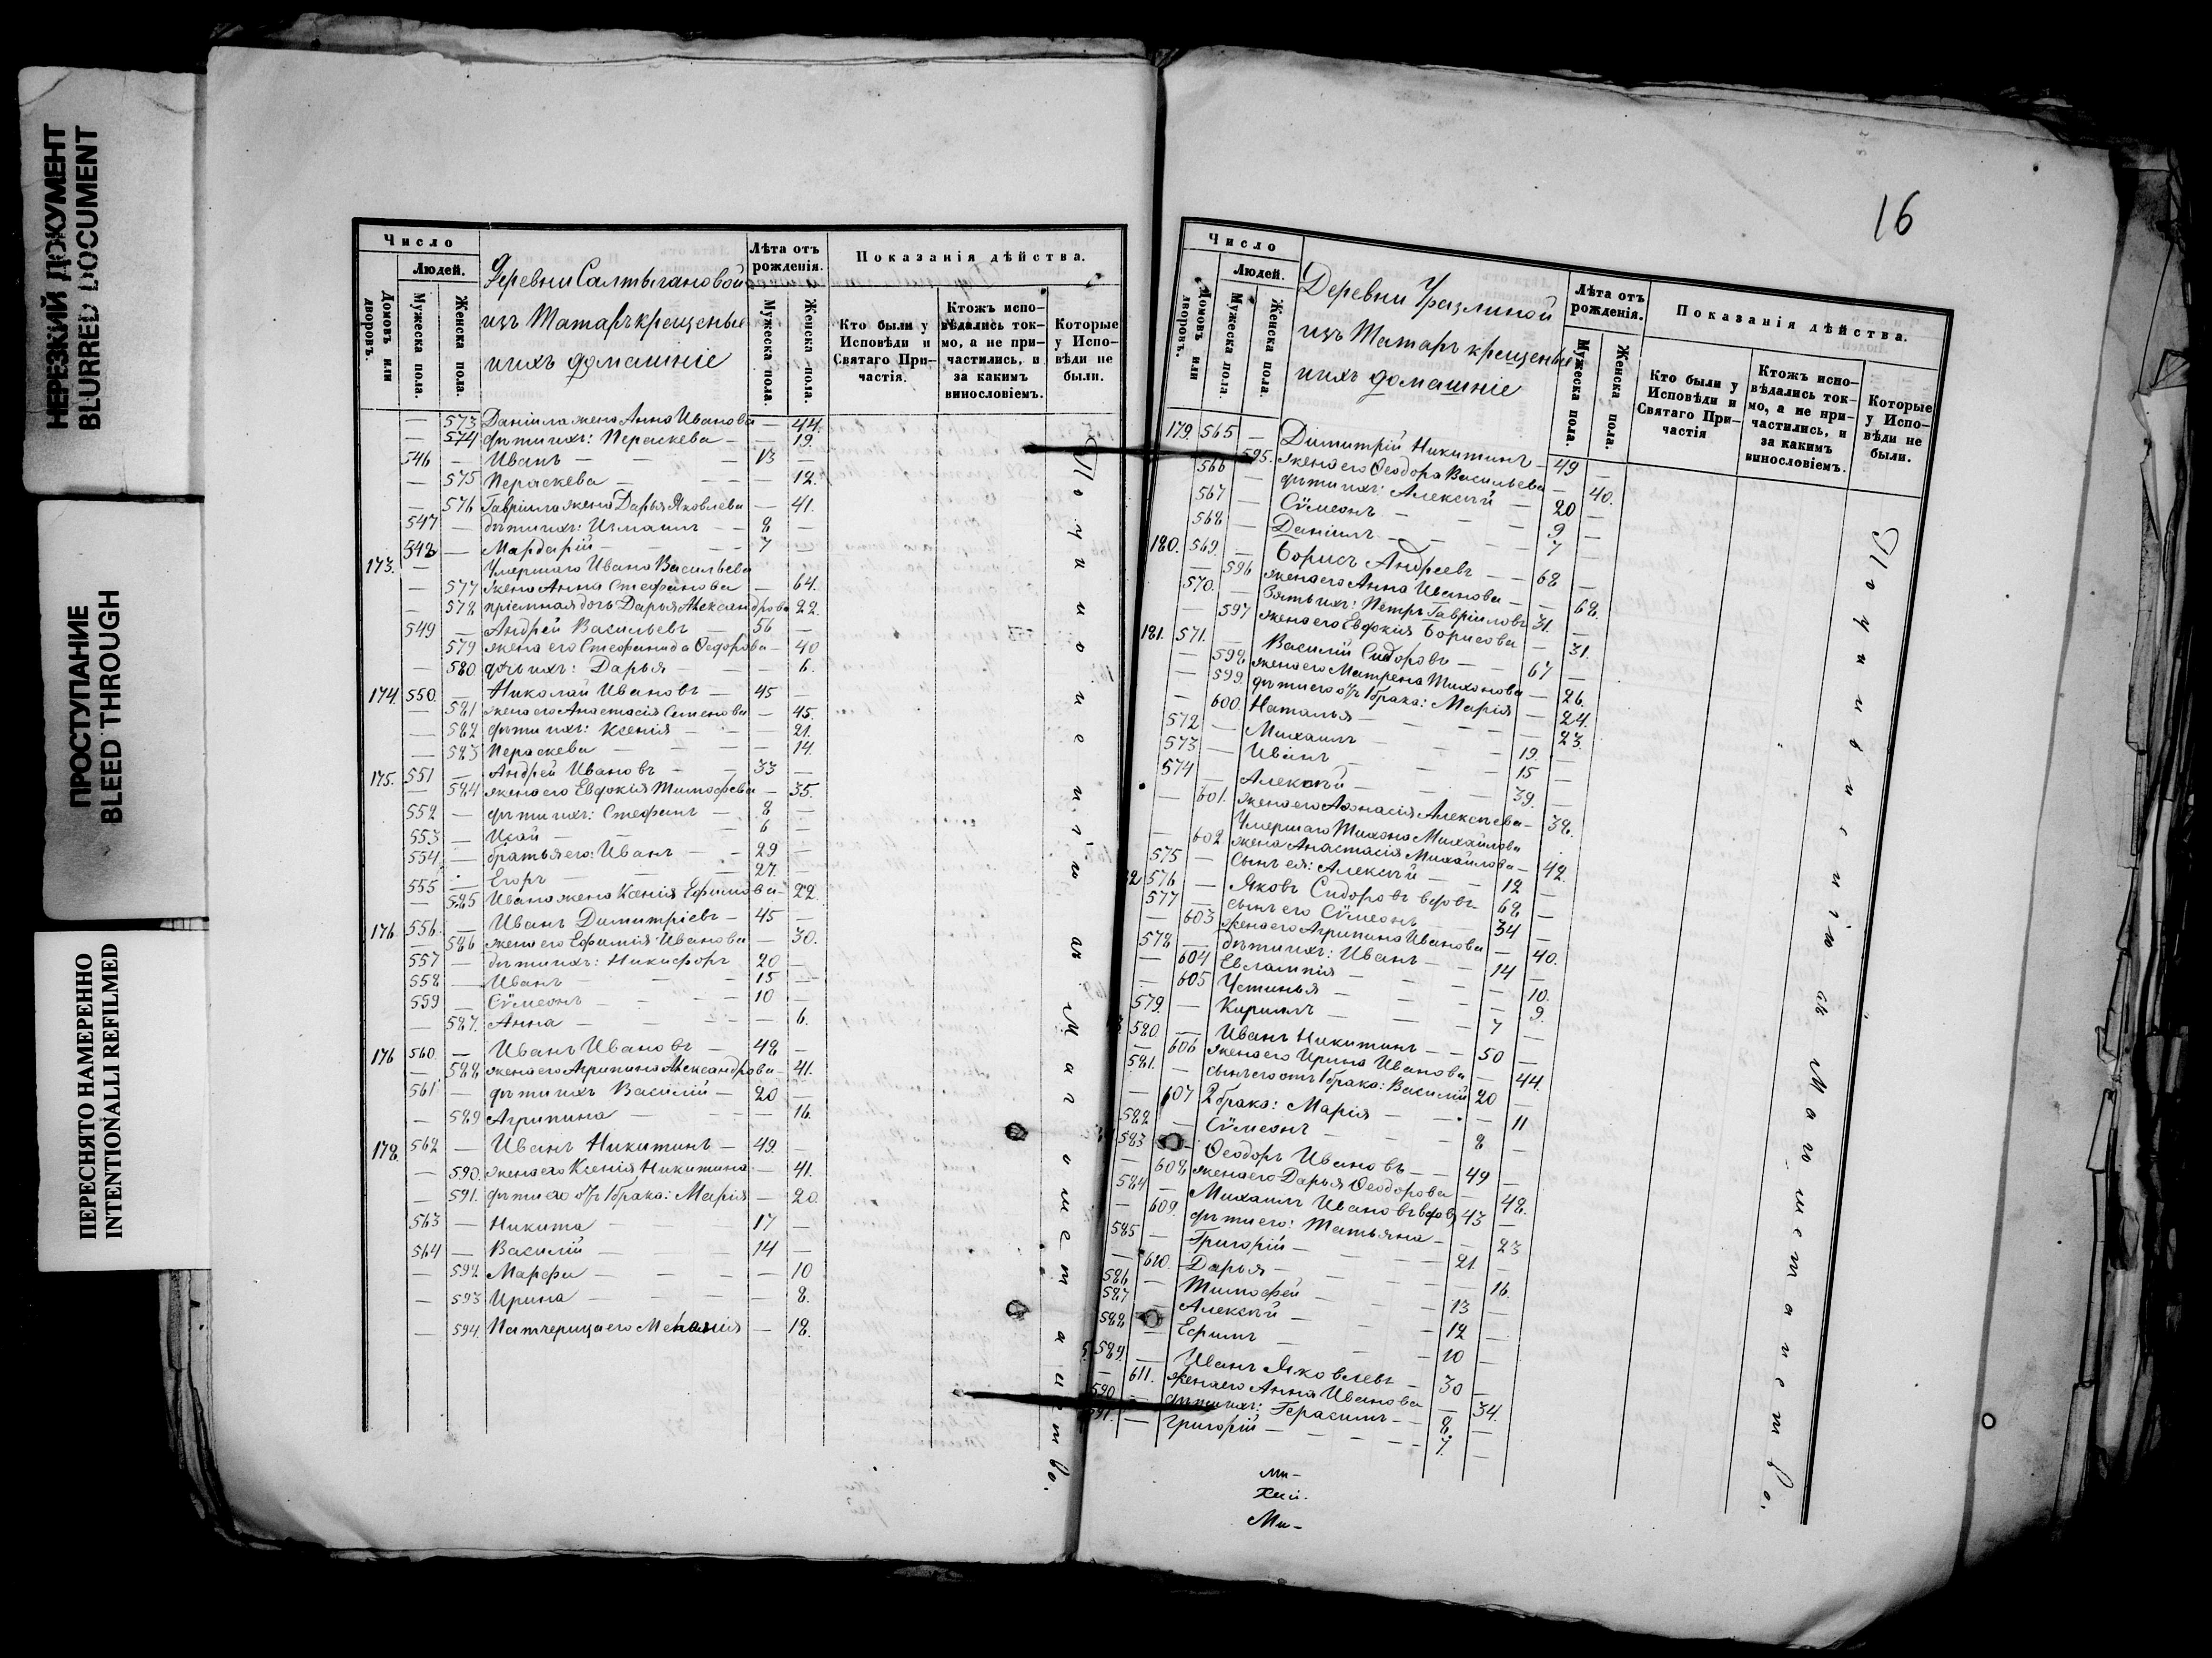 НЕРЕЗКИЙ ДОКУМЕНТ
BLURRED DOCUMENT
ПРОСТУПАНИЕ
BLEED THROUGH
ПЕРЕСНЯТО НАМЕРЕННО
INTENTIONALLI REFILMED
Число
Людей.
Домовъ или дворовъ.
Мужеска пола.
Женска пола.
Деревни Салтыгановой
изъ Татаръ крещеные
и ихъ домашніе
Лѣта отъ рожденія.
Мужеска пола.
Женска пола.
Показанія дѣйства.
Кто были у Исповѣди и Святаго При-частія.
Ктожъ испо-вѣдались ток-мо, а не при-частились, и за какимъ винословіемъ.
Которые у Испо-вѣди не были.
— 573 Даніила жена Анна Иванова — 44.
— 574 дѣти ихъ: Параскева — — 19.
546 — Иванъ — — — 13 —
— 575 Параскева — — — 12.
— 576 Гавріила жена Дарья Яковлева — 41.
547 — дѣти ихъ: Измаилъ — — 8 —
548 — Мардарій — — — 7 —
173. — Умершаго Ивана Васильева
— 577 жена Анна Стефанова — 64.
— 578 пріемная дочь Дарья Александрова 22.
549 — Андрей Васильевъ — 56 —
579 жена его Стефанида Ѳеодорова — 40
— 580 дочь ихъ: Дарья — — 6.
174. 550. — Николай Ивановъ — 45 —
— 581 жена его Анастасія Семенова — 45.
— 582 дѣти ихъ: Ксенія — — 21.
— 583 Параскева — — — 14.
175. 551 — Андрей Ивановъ — — 33 —
— 584 жена его Евдокія Тимофеева — 35.
552 — дѣти ихъ: Стефанъ — 8 —
553 — Исай — — — 6 —
554 — братья его: Иванъ — — 29 —
555 — Егоръ — — — 27.
— 585 Ивана жена Ксенія Ефимова — 22.
176 556. — Иванъ Димитріевъ — 45 —
— 586 жена его Ефимія Иванова — 30.
557 — дѣти ихъ: Никифоръ 20 —
558 — Иванъ — — — 15 —
559 — Сѵмеонъ — — — 10 —
— 587. Анна — — — — 6.
176 560. — Иванъ Ивановъ — 48 —
— 588 жена его Агрипина Александрова — 41.
561 — дѣти ихъ Василій — 20 —
— 589 Агрипина — — — 16.
178. 562 — Иванъ Никитинъ — 49.
— 590. жена его Ксенія Никитина — 41.
— 591. дѣти его отъ 1 брака: Марія — 20.
563 — Никита — — — 17 —
564 — Василій — — — 14 —
— 592 Марфа — — — — 10
— 593 Ирина — — — — 8.
— 594. Патчерица его Меланія — 18.
По училоненію къ Магометанству.
16
Число
Людей.
Домовъ или дворовъ.
Мужеска пола.
Женска пола.
Деревни Уразлиной
изъ Татаръ крещеные
и ихъ домашніе
Лѣта отъ рожденія.
Мужеска пола.
Женска пола.
Показанія дѣйства.
Кто были у Исповѣди и Святаго При-частія
Ктожъ испо-вѣдались ток-мо, а не при-частились, и за какимъ винословіемъ.
Которые у Испо-вѣди не были.
179. 565 — Димитрій Никитинъ — 49 —
595. жена его Ѳеодора Васильева — 40.
566 — дѣти ихъ: Алексѣй — 20 —
567 — Сѵмеонъ — — 9 —
568 — Даніилъ — — 7 —
180. 569. — Борисъ Андреевъ — — 68 —
— 596 жена его Анна Иванова — — 68.
570. — Зять ихъ: Петръ Гавріиловъ 31. —
— 597 жена его Евдокія Борисова — 31.
181. 571. — Василій Сидоровъ — — 67 —
— 598 жена его Матрена Тихонова — 26.
— 599. дѣти его отъ 1 брака: Марія — 24.
— 600. Наталья — — — 23.
572 — Михаилъ — — 19. —
573 — Иванъ — — — 15 —
574 — Алексѣй — — — 39. —
— 601. жена его Аѳанасія Алексѣева — 38.
Умершаго Тихона Михайлова
— 602 жена Анастасія Михайлова — 42.
575 — сынъ ея: Алексѣй — — 12 —
576 — Яковъ Сидоровъ вдовъ 68 —
577 — сынъ его Сѵмеонъ 34 —
— 603 жена его Агрипина Иванова — 40.
578 — дѣти ихъ: Иванъ — — 14 —
— 604 Евлампія — — — 10.
— 605 Устинья — — — 9.
579. — Кирилъ — — — 7 —
580. — Иванъ Никитинъ — — 50 —
— 606 жена его Ирина Иванова — 44.
581. — сынъ его отъ 1 брака: Василій 20 —
— 607 2 брака: Марія — — 11
582 — Сѵмеонъ — — — 8 —
583 — Ѳеодоръ Ивановъ — — 49 —
— 608 жена его Дарья Ѳеодорова — 48.
584 — Михаилъ Ивановъ вдовъ 43 —
— 609 дѣти его: Татьяна — — 23
585 — Григорій — — — 21 —
— 610. Дарья — — — — 16.
586 — Тимофей — — — 13 —
587 — Алексѣй — — — 12 —
588 — Ефимъ — — — 10 —
589. — Иванъ Яковлевъ — 30 —
— 611. жена его Анна Иванова — 34.
590 — дѣти ихъ: Герасимъ — — 8. —
591. — Григорій — — — — 7. —
Ми-
хай.
Ми-